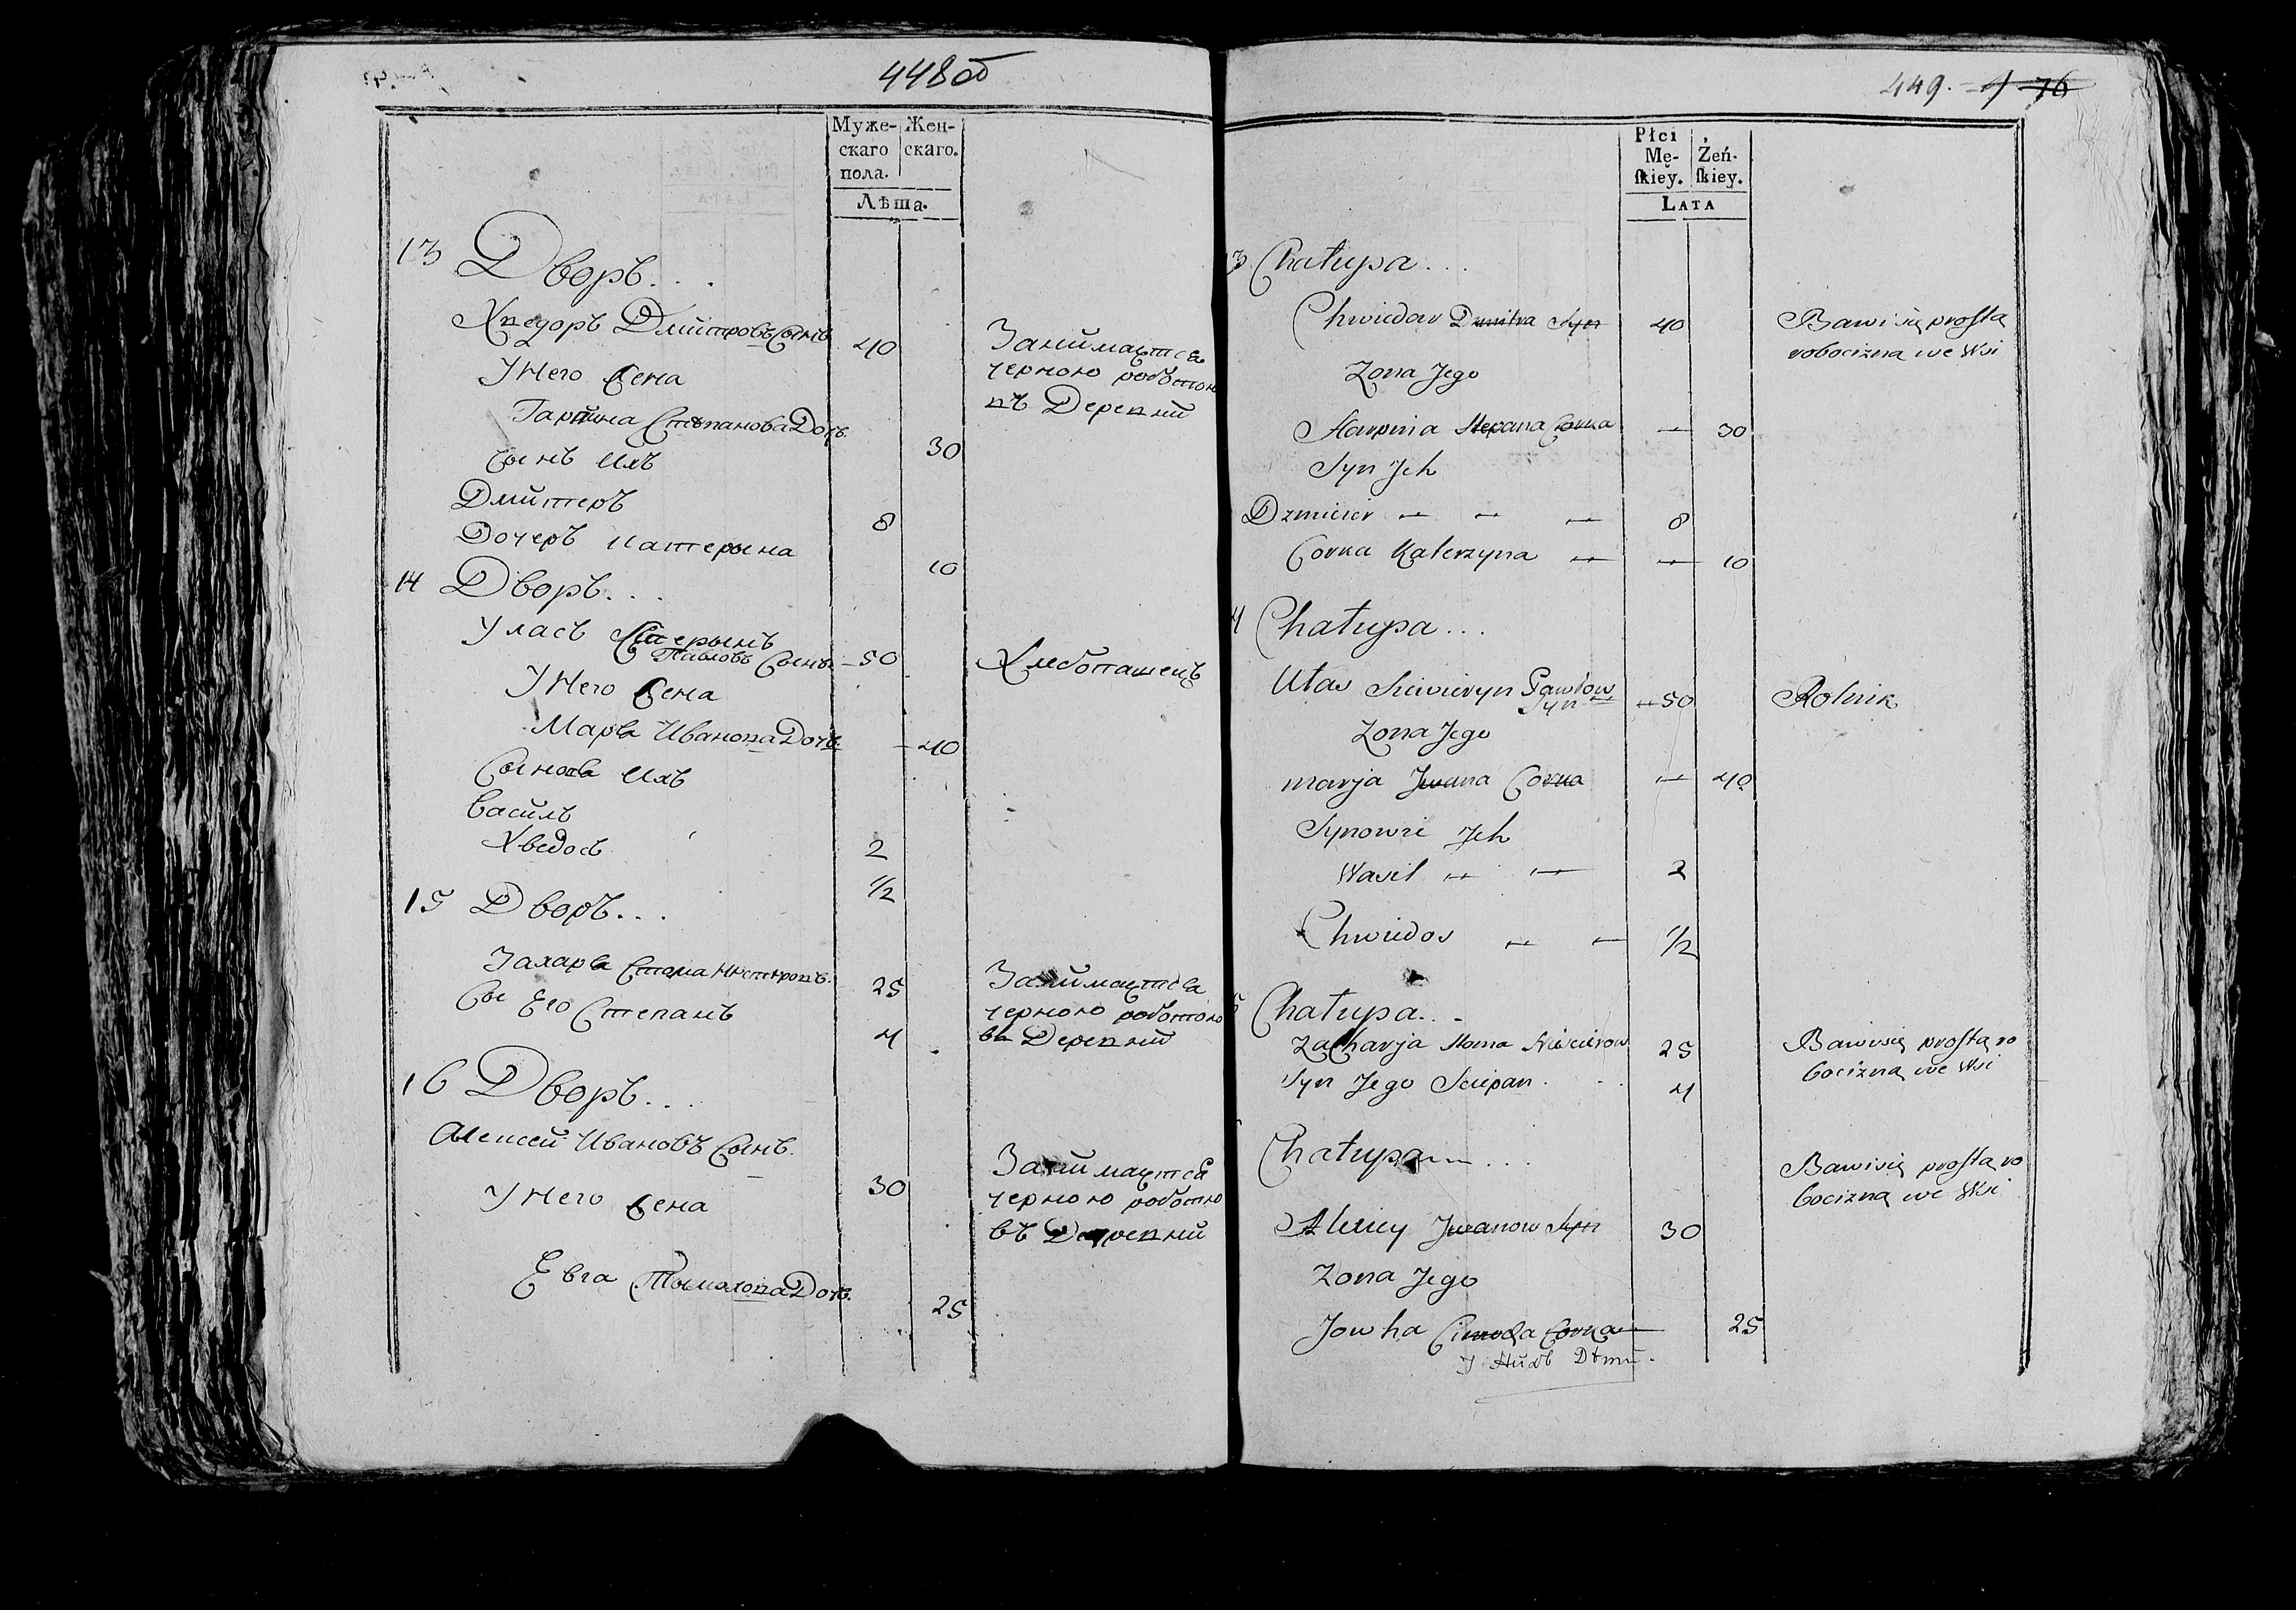 448об
Муже-
скаго
пола.
Жен-
скаго.
Лѣта.
13 Дворъ...
Хведоръ Дмитровъ Сынъ 40
Занимается
черною роботою
въ Деревни
У Него Жена
Степанова Дочь 30
Сынъ Ихъ
Дмитеръ 8
Дочеръ Катерына 10
14 Дворъ...
Уласъ
Павловъ Сынъ 50
Хлебопашецъ
У Него Жена
Марья Иванова Дочь 40
Сыновя Ихъ
Василь 2
Хведосъ 1/2
15 Дворъ...
Захарья Стома 25
Занимается
черною роботою
въ Деревни
Сы Его Степанъ 4
16 Дворъ...
Алексей Ивановъ Сынъ 30
Занимается
черною роботою
въ Деревни
У Него Жена
Евга Дочь 25
449.
76
Płci
Mę-
ſkiey.
Żeń-
ſkiey.
LATA
3 Chałupa...
Chwiedor Dmitra Syn 40
Bawi się prostą
robocizną we Wsi
Zona Jego
Stepana Corka — 30
Syn Jch
Dzmicier — — — 8
Corka Katerzyna — — 10
4 Chałupa...
Ułas Pawłow
Syn — 50
Rolnik
Zona Jego
marja Jwana Corka — 40
Synowie Jch
Wasil — — 2
Chwiedos — — 1/2
5 Chałupa...
Zacharja Stoma 25
Bawi się prostą ro
bocizną we Wsi
Syn Jego Sciepan 4
Chałupa...
Bawi się prostą ro
bocizną we Wsi
Alexiey Jwanow Syn 30
Zona Jego
Jowha Corka 25
У Нихъ Дѣти.